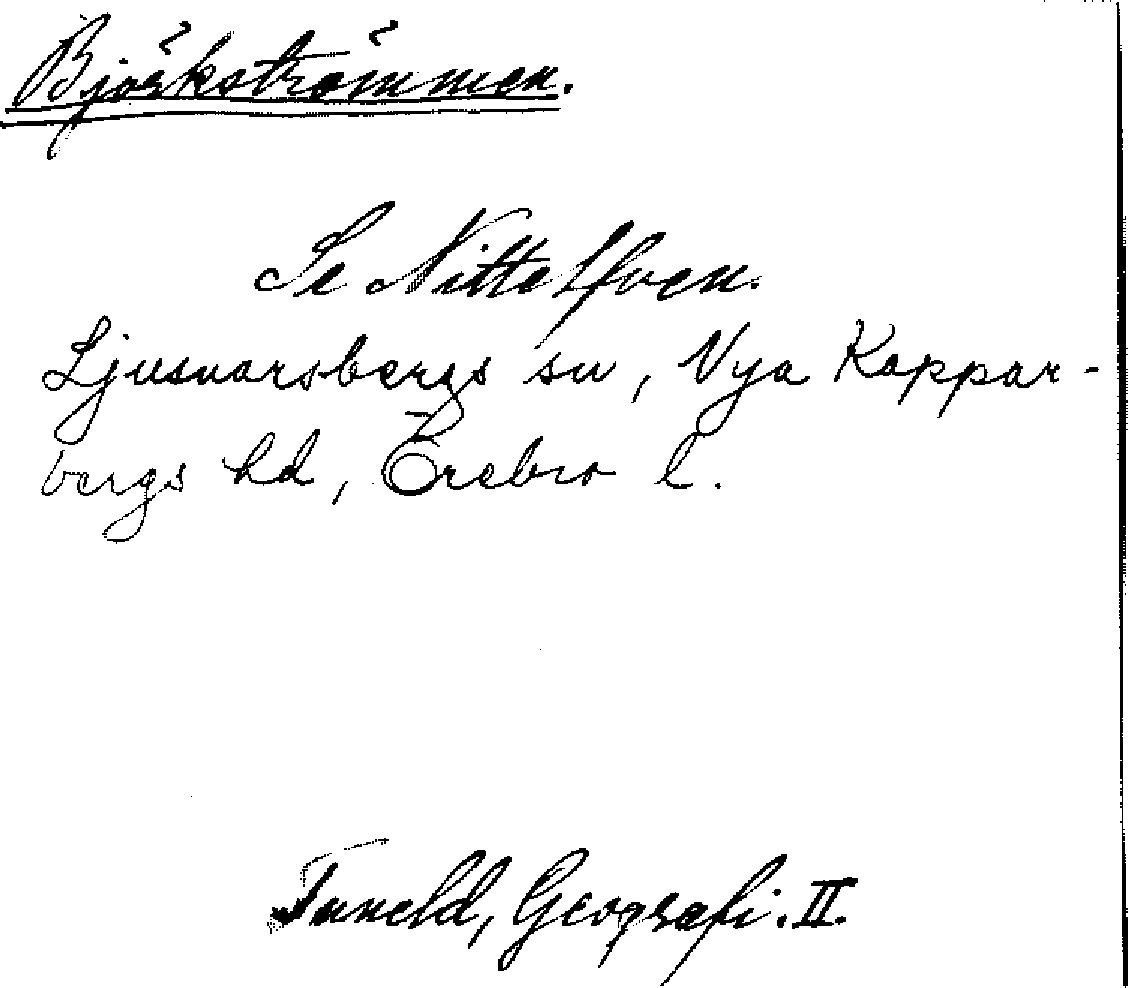 Björkströmmen.
Se Nittelfven.
Ljusnarsbergs sn, Nya Koppar-
bergs hd, Örebro l.
Tuneld, Geografi. II.